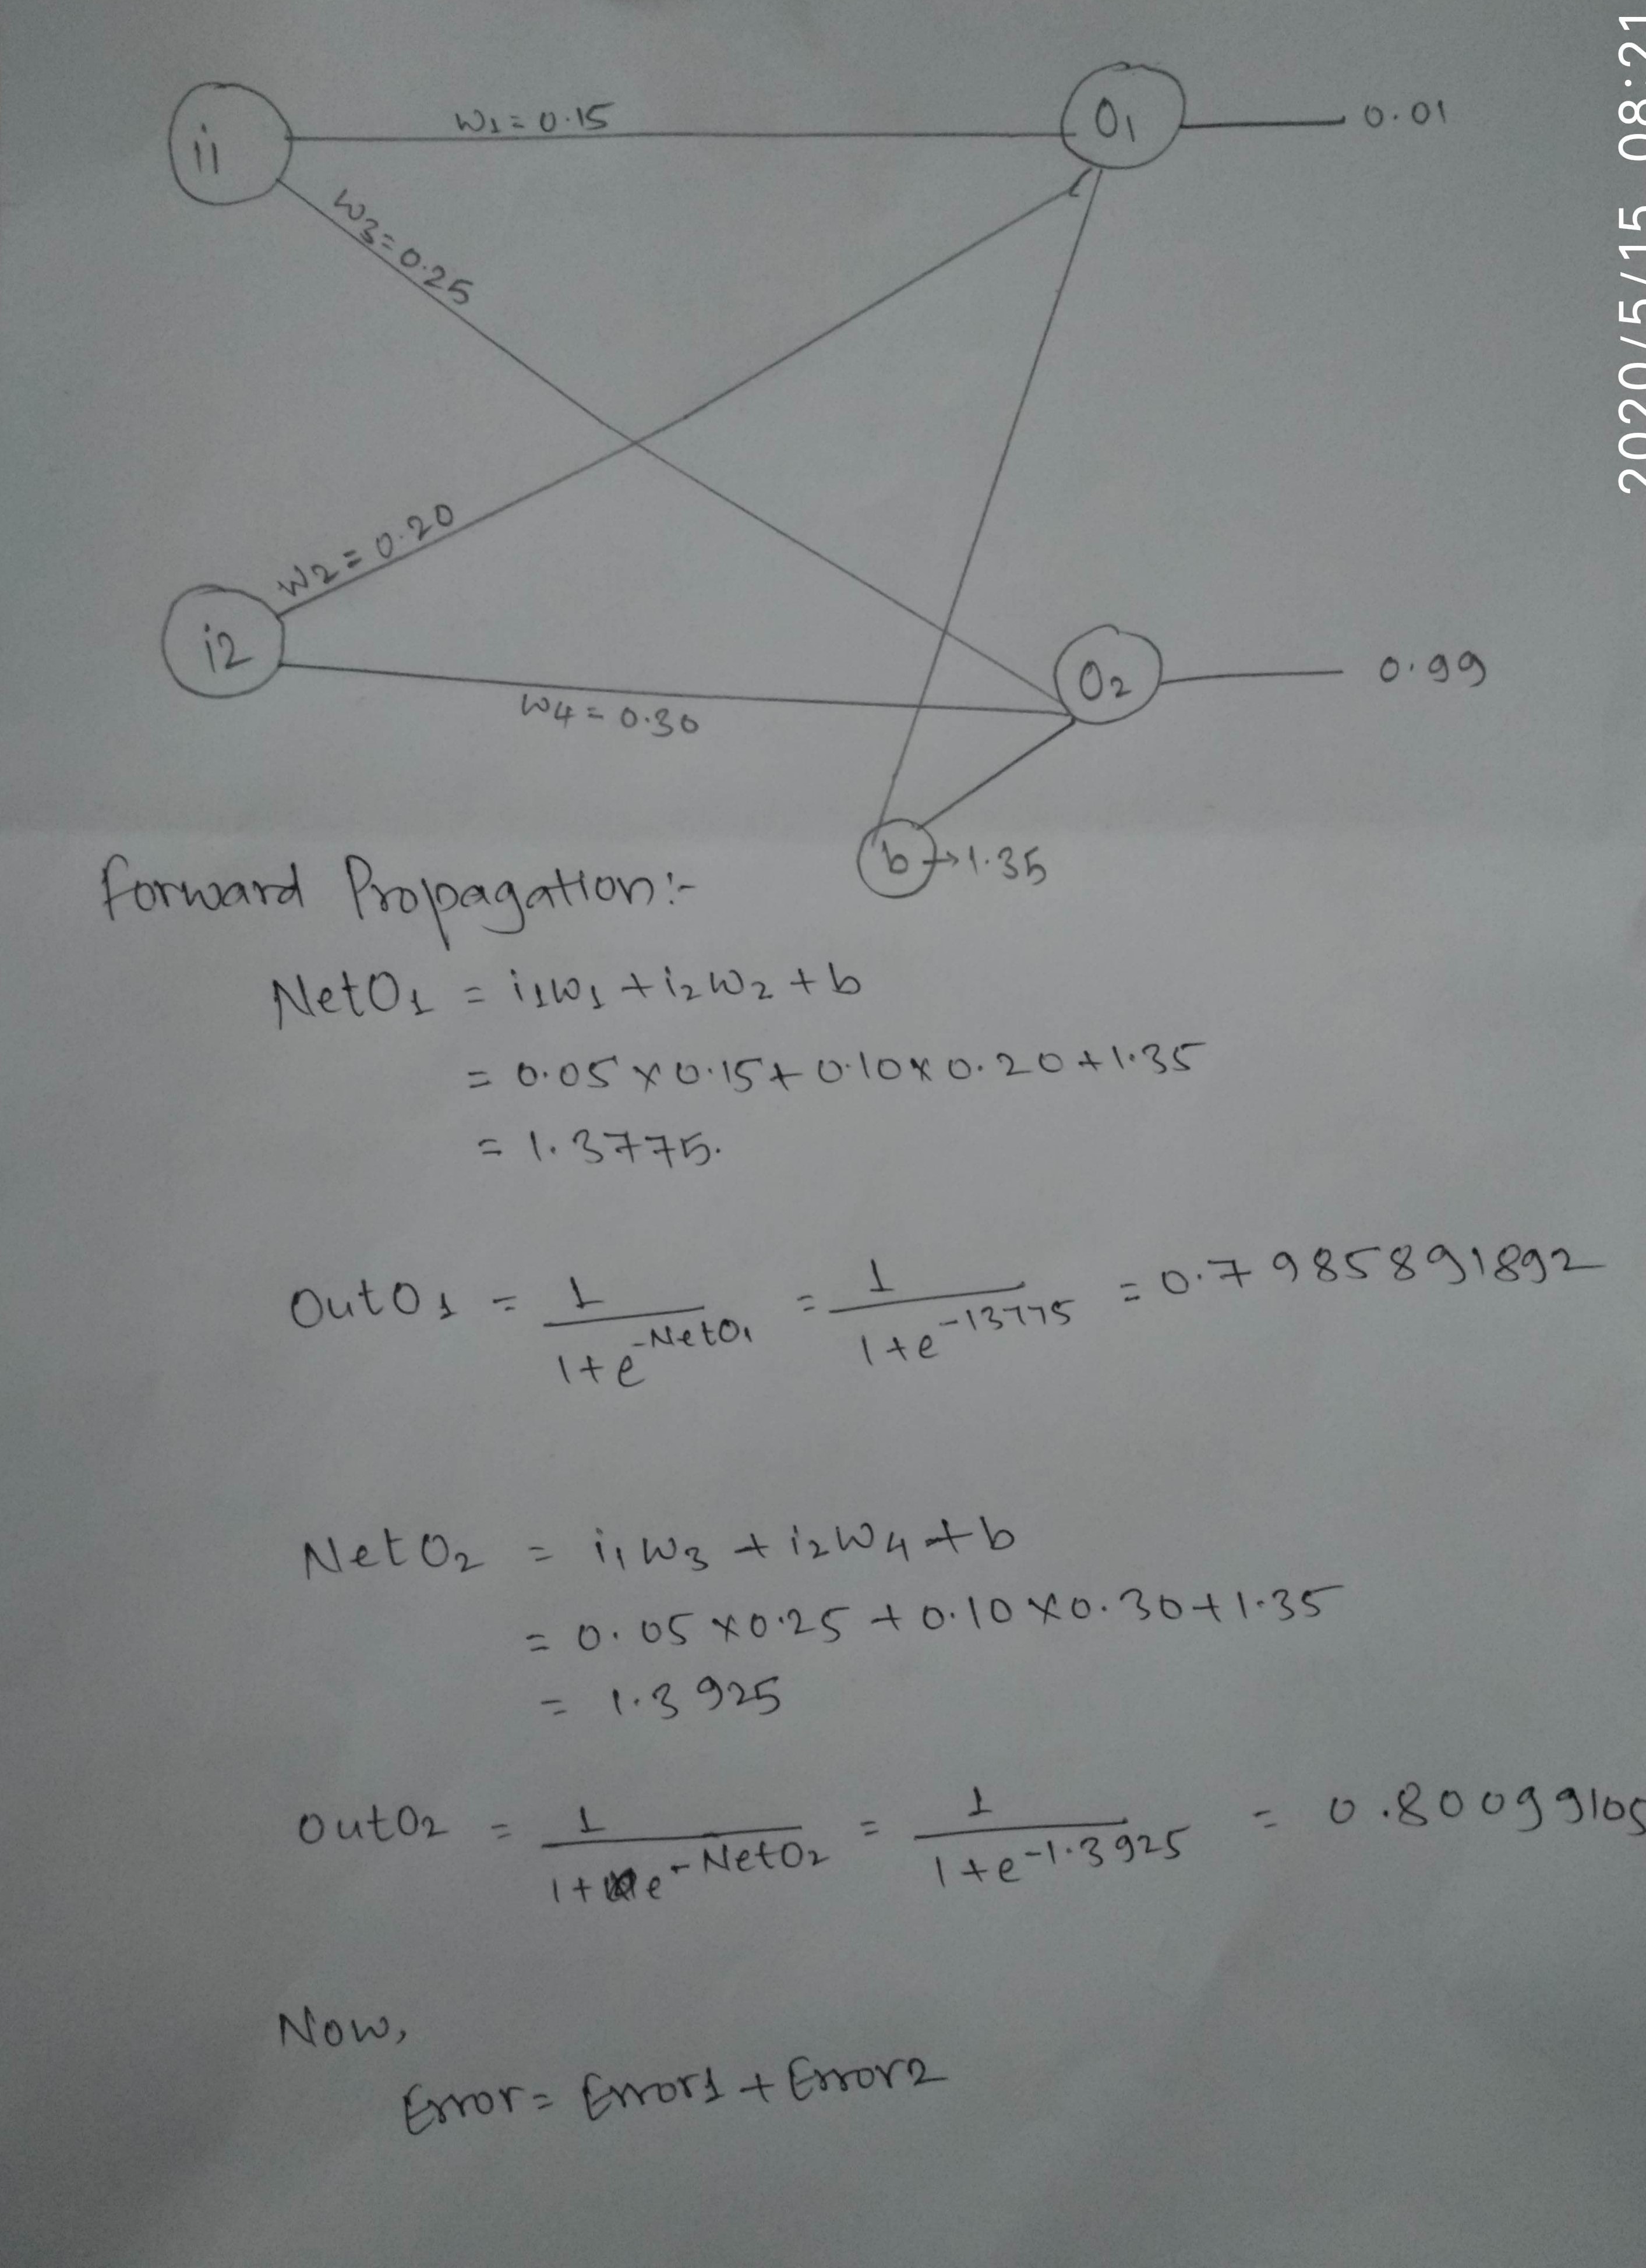 2020/5/15 08:21
i1
W1 = 0.15
O1
0.01
W3 = 0.25
W2 = 0.20
i2
W4 = 0.30
O2
0.99
b → 1.35
Forward Propagation:-
NetO1 = i1W1 + i2W2 + b
= 0.05 × 0.15 + 0.10 × 0.20 + 1.35
= 1.3775.
OutO1 = 1/(1+e^-NetO1) = 1/(1+e^-13775) = 0.7985891892
NetO2 = i1W3 + i2W4 + b
= 0.05 × 0.25 + 0.10 × 0.30 + 1.35
= 1.3925
OutO2 = 1/(1+e^-NetO2) = 1/(1+e^-1.3925) = 0.80099105
Now,
Error = Error1 + Error2